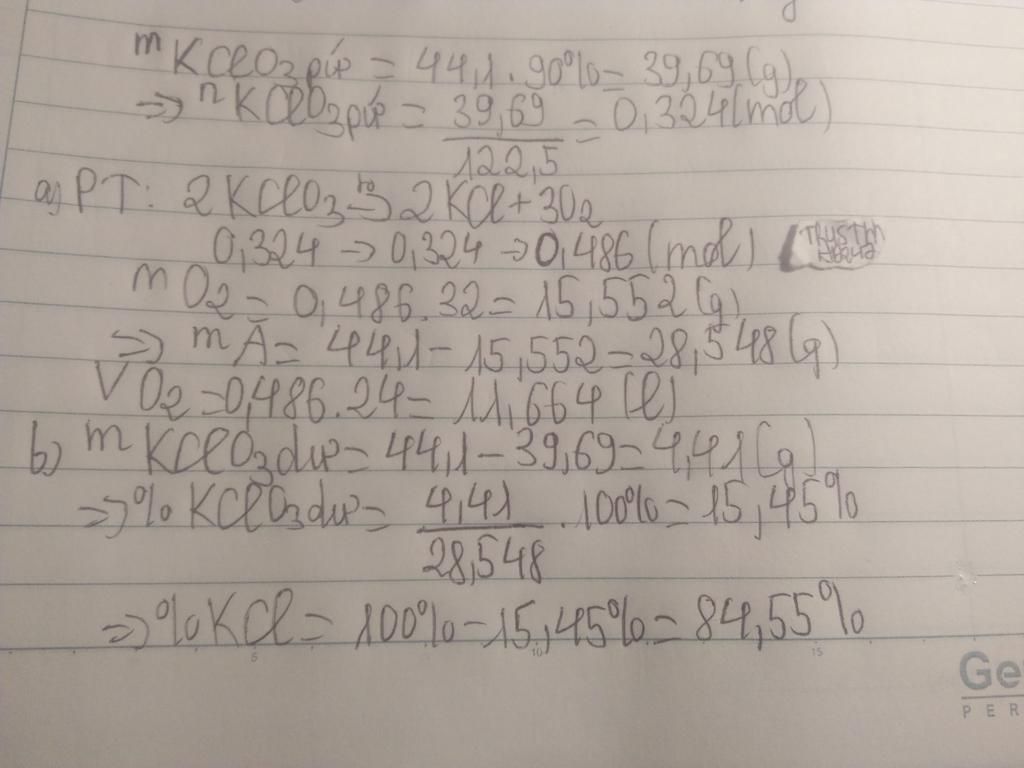 mKClO3 pứ = 44,1 . 90% = 39,69(g)
=> nKClO3 pứ = 39,69/122,5 = 0,324(mol)
a) PT: 2KClO3 -t°-> 2KCl + 3O2
0,324 -> 0,324 -> 0,486 (mol)
mO2 = 0,486.32 = 15,552(g)
=> mA = 44,1 - 15,552 = 28,548(g)
VO2 = 0,486.24 = 11,664 (l)
b) mKClO3 dư = 44,1 - 39,69 = 4,41(g)
=> %KClO3 dư = 4,41/28,548 . 100% = 15,45%
=> %KCl = 100% - 15,45% = 84,55%
5 10 15
Ge
PER